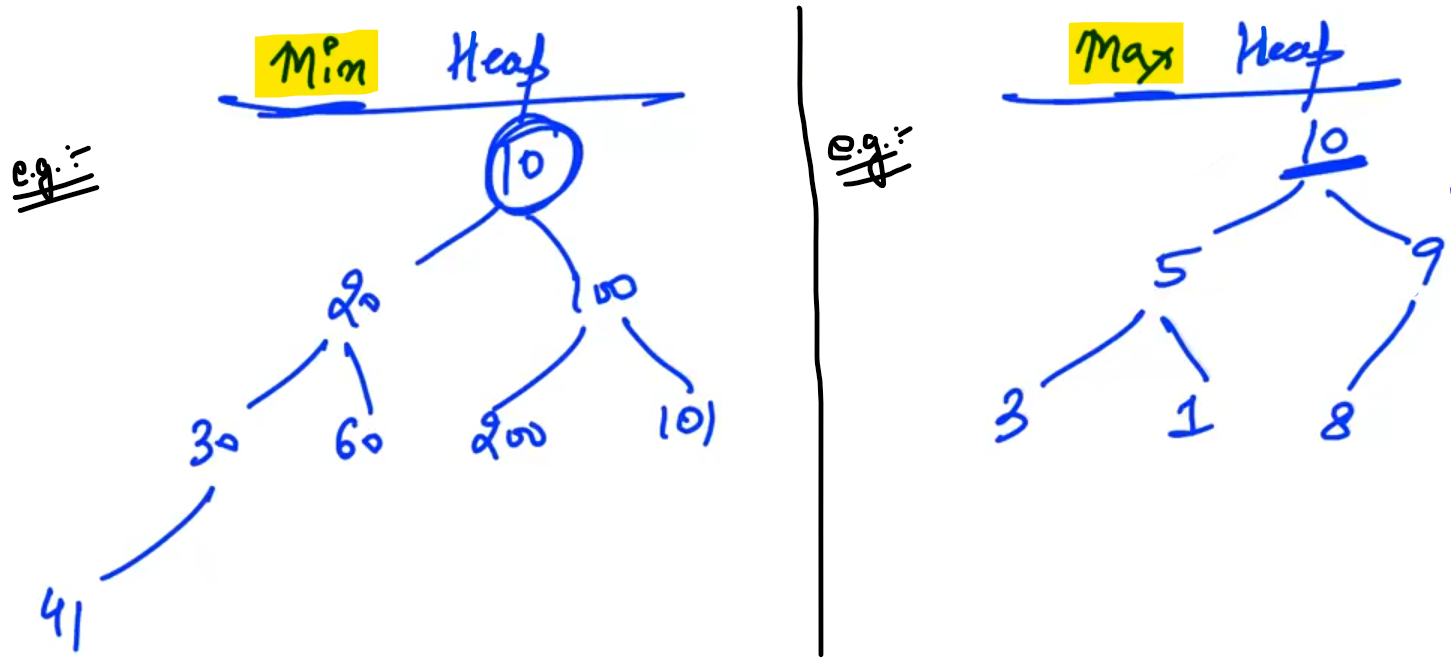 Min Heap
e.g.:-
10
20 100
30 60 200 101
41
Max Heap
e.g.:-
10
5 9
3 1 8